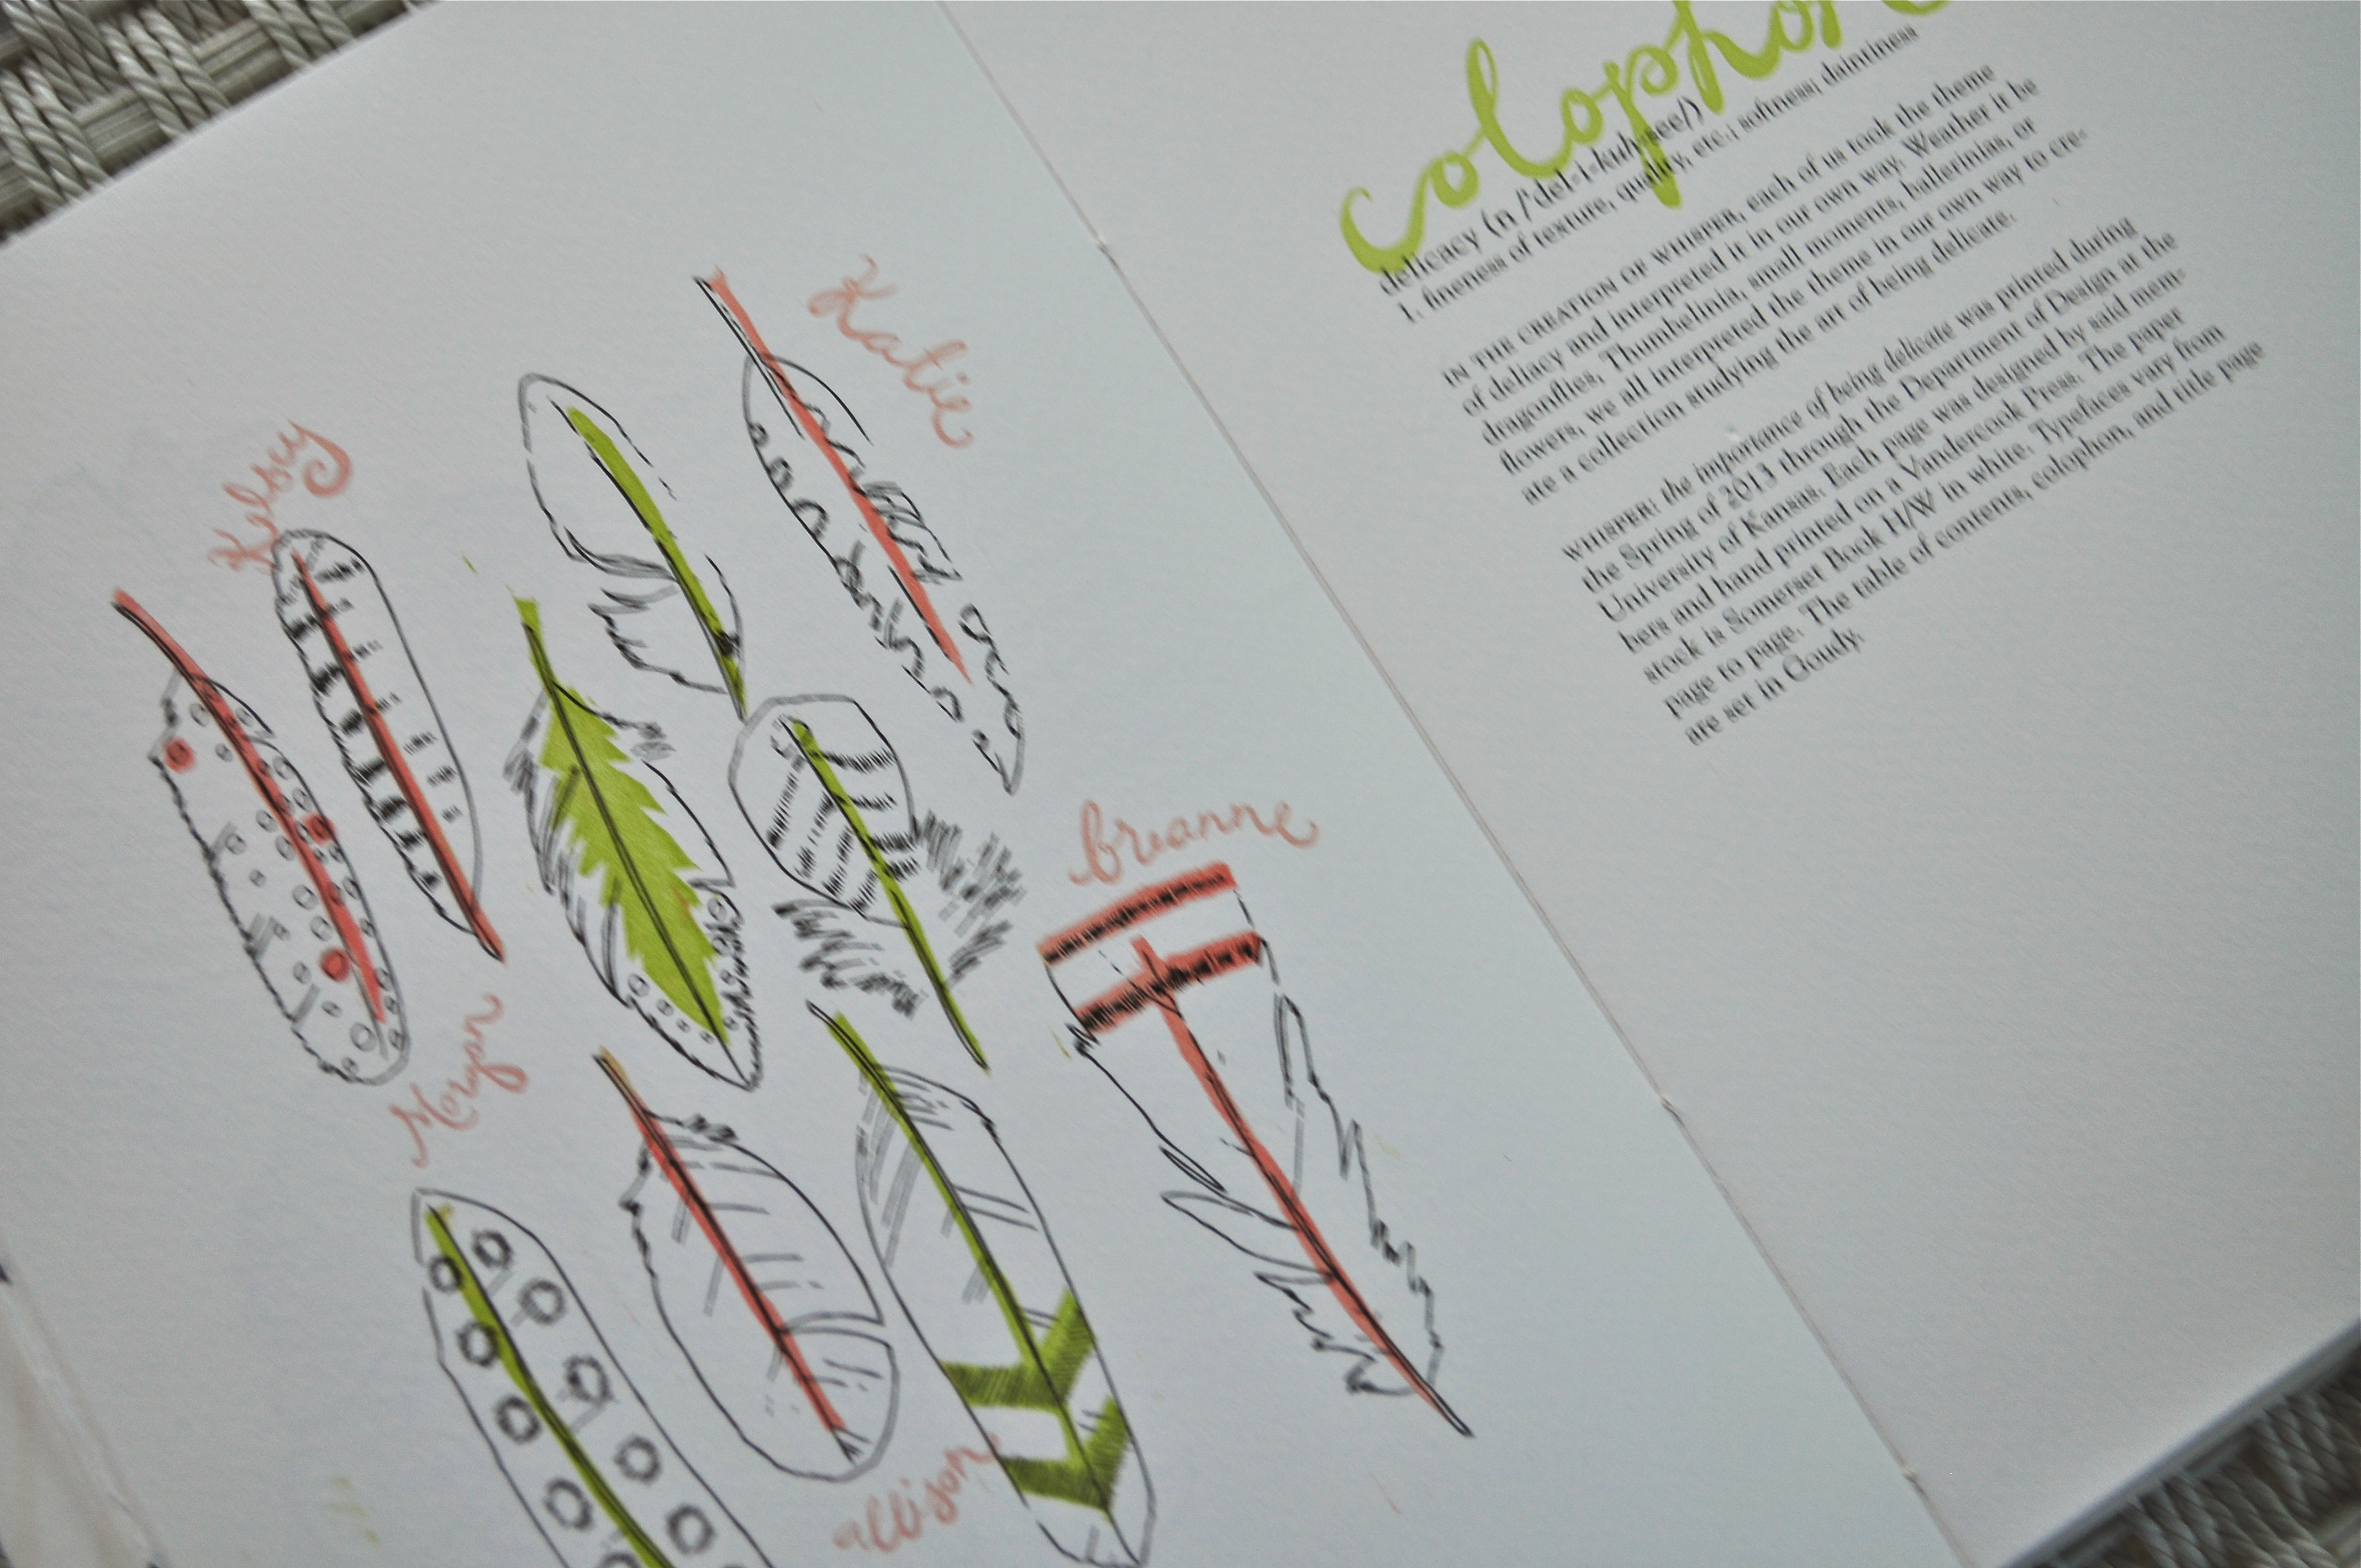 Katie
Kelsy
breanne
Morgan
allison
colophon
delicacy (n /'del-i-kuh-see/)
1. fineness of texture, quality, etc.; softness; daintiness
IN THE CREATION OF WHISPER, each of us took the theme
of deliacy and interpreted it in our own way. Weather it be
dragonflies, Thumbelinia, small moments, ballerinias, or
flowers, we all interpreted the theme in our own way to cre-
ate a collection studying the art of being delicate.
WHISPER: the importance of being delicate was printed during
the Spring of 2013 through the Department of Design at the
University of Kansas. Each page was designed by said mem-
bers and hand printed on a Vandercook Press. The paper
stock is Somerset Book H/W in white. Typefaces vary from
page to page. The table of contents, colophon, and title page
are set in Goudy.